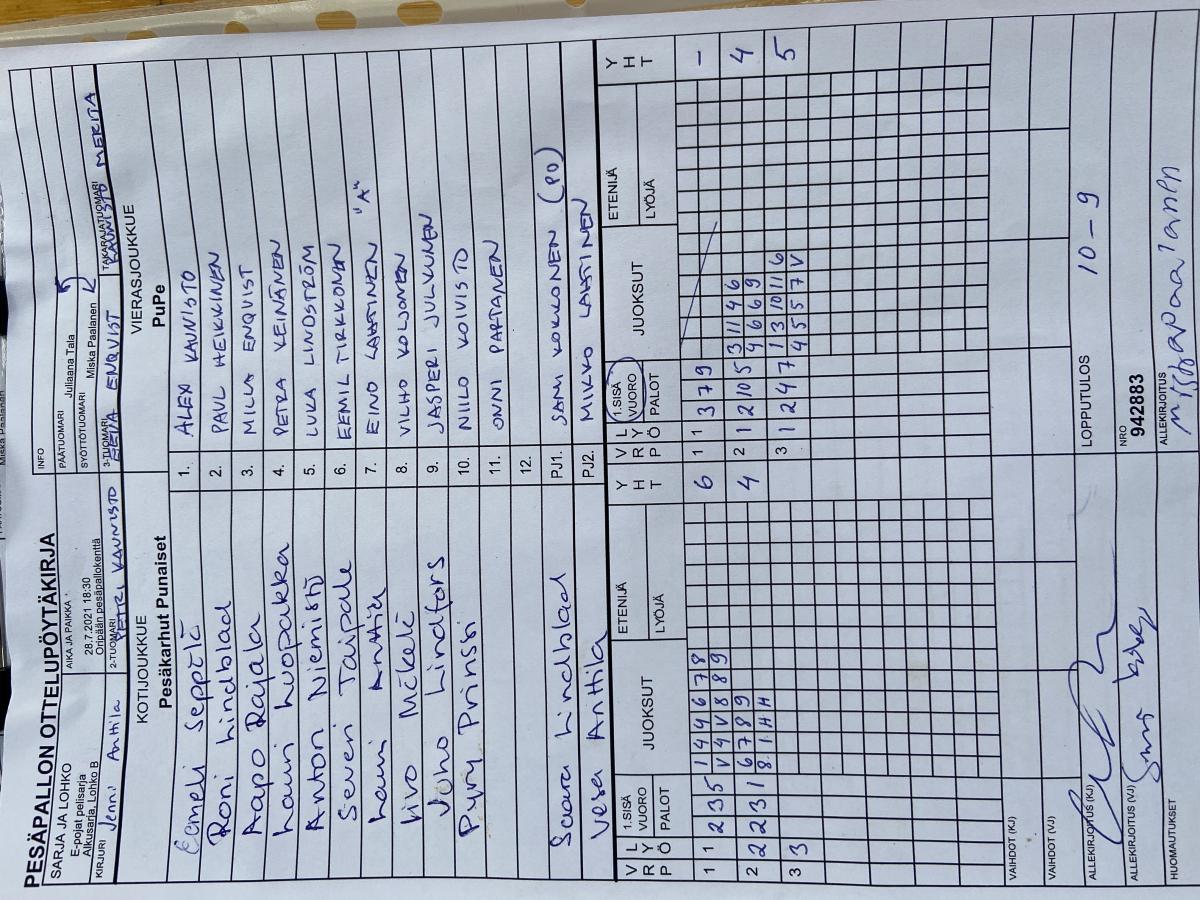 PESÄPALLON OTTELUPÖYTÄKIRJA
SARJA JA LOHKO
E-pojat pelisarja
Alkusarja, Lohko B
AIKA JA PAIKKA
28.7.2021 18:30
Oripään pesäpallokenttä
INFO
PÄÄTUOMARI Juliaana Tala
SYÖTTÖTUOMARI Miska Paalanen
KIRJURI Jenni Anttila
2-TUOMARI PETRI KAUNISTO
3-TUOMARI ENQVIST
TAKARAJATUOMARI KAUNISTO MERITA
KOTIJOUKKUE
Pesäkarhut Punaiset
VIERASJOUKKUE
PuPe
Eemeli Seppälä 1. ALEXI KAUNISTO
Roni Lindblad 2. PAUL HEIKKINEN
Aapo Rajala 3. MILLA ENQVIST
Lauri Luopakka 4. PETRA KEINÄNEN
Anton Niemistö 5. LUKA LINDSTRÖM
Severi Taipale 6. EEMIL TIRKKONEN
Lauri Anttila 7. EINO LAATINEN "A"
Kivo Mäkelä 8. VILHO KOLJONEN
Juho Lindfors 9. JASPERI JULKUNEN
Pyry Prinssi 10. NIILO KOIVISTO
11. ONNI PARTANEN
12.
Saara Lindblad PJ1. SAMI KOKKONEN (PO)
Vesa Anttila PJ2. MIKKO LAATINEN
V R P L Y Ö 1.SISÄ VUORO PALOT JUOKSUT ETENIJÄ LYÖJÄ Y H T V R P L Y Ö 1.SISÄ VUORO PALOT JUOKSUT ETENIJÄ LYÖJÄ Y H T
1 1 2 3 5 1 4 4 6 7 8 6 1 1 3 7 9 –
V 4 V 8 8 9
2 2 2 3 1 6 7 8 9 4 2 1 2 10 5 3 11 4 6 4
8 1 H H 4 6 6 9
3 3 3 1 2 4 7 1 3 10 11 6 5
4 5 5 7 V
VAIHDOT (KJ)
VAIHDOT (VJ)
ALLEKIRJOITUS (KJ)
LOPPUTULOS 10 – 9
ALLEKIRJOITUS (VJ)
NRO
942883
HUOMAUTUKSET
ALLEKIRJOITUS
Miska Paalanen